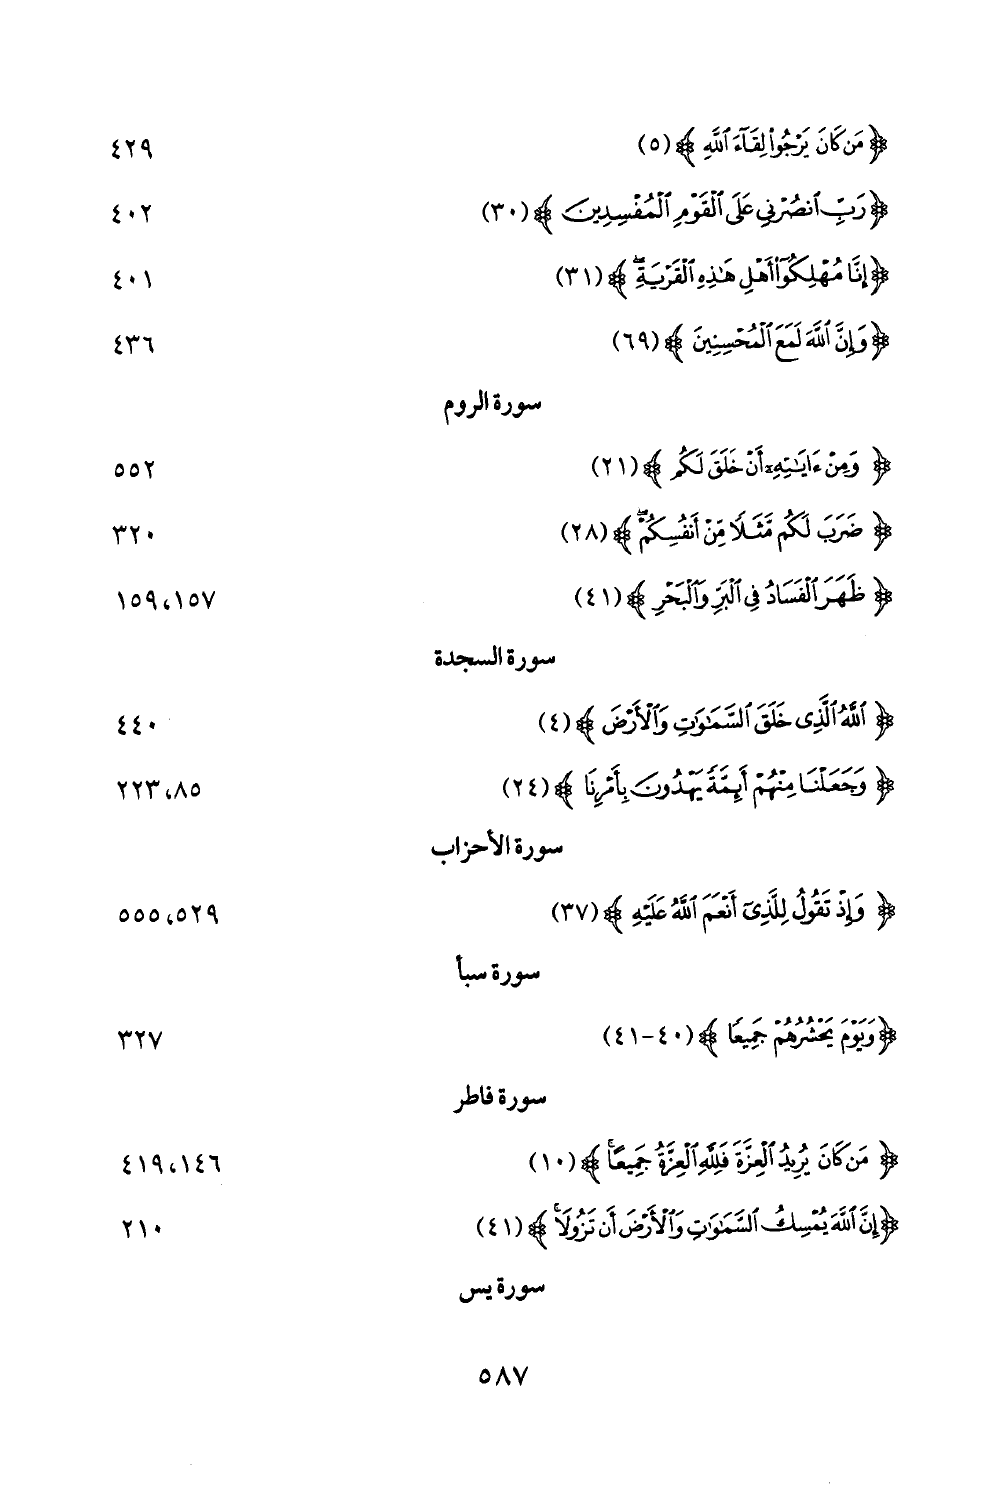 ﴿مَن كَانَ يَرْجُوا۟ لِقَآءَ ٱللَّهِ ﴾ (٥) ٤٢٩
﴿رَبِّ ٱنصُرْنِي عَلَى ٱلْقَوْمِ ٱلْمُفْسِدِينَ ﴾ (٣٠) ٤٠٢
﴿إِنَّا مُهْلِكُوٓا۟ أَهْلِ هَٰذِهِ ٱلْقَرْيَةِ ۖ ﴾ (٣١) ٤٠١
﴿وَإِنَّ ٱللَّهَ لَمَعَ ٱلْمُحْسِنِينَ ﴾ (٦٩) ٤٣٦
سورة الروم
﴿ وَمِنْ ءَايَٰتِهِۦٓ أَنْ خَلَقَ لَكُم ﴾ (٢١) ٥٥٢
﴿ ضَرَبَ لَكُم مَّثَلًا مِّنْ أَنفُسِكُمْ ۖ ﴾ (٢٨) ٣٢٠
﴿ ظَهَرَ ٱلْفَسَادُ فِى ٱلْبَرِّ وَٱلْبَحْرِ ﴾ (٤١) ١٥٩،١٥٧
سورة السجدة
﴿ ٱللَّهُ ٱلَّذِى خَلَقَ ٱلسَّمَٰوَٰتِ وَٱلْأَرْضَ ﴾ (٤) ٤٤٠
﴿ وَجَعَلْنَا مِنْهُمْ أَئِمَّةً يَهْدُونَ بِأَمْرِنَا ﴾ (٢٤) ٢٢٣،٨٥
سورة الأحزاب
﴿ وَإِذْ تَقُولُ لِلَّذِىٓ أَنْعَمَ ٱللَّهُ عَلَيْهِ ﴾ (٣٧) ٥٥٥،٥٢٩
سورة سبأ
﴿وَيَوْمَ يَحْشُرُهُمْ جَمِيعًا ﴾ (٤٠-٤١) ٣٢٧
سورة فاطر
﴿ مَن كَانَ يُرِيدُ ٱلْعِزَّةَ فَلِلَّهِ ٱلْعِزَّةُ جَمِيعًا ۚ ﴾ (١٠) ٤١٩،١٤٦
﴿إِنَّ ٱللَّهَ يُمْسِكُ ٱلسَّمَٰوَٰتِ وَٱلْأَرْضَ أَن تَزُولَا ۚ ﴾ (٤١) ٢١٠
سورة يس
٥٨٧